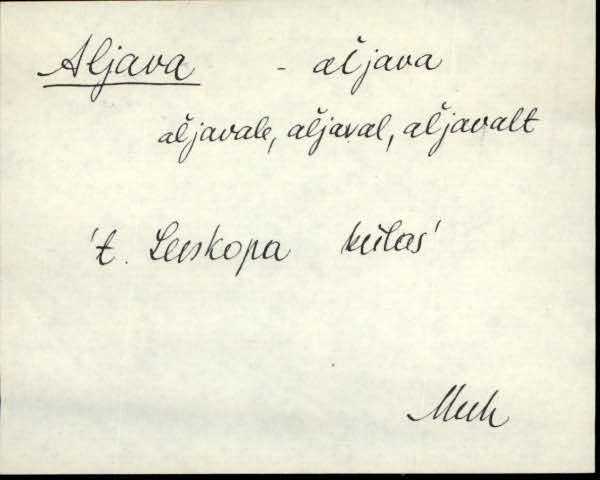 Aljava - aľjava
aľjavale, aľjaval, aľjavalt
't. Leeskopa külas'
Muh